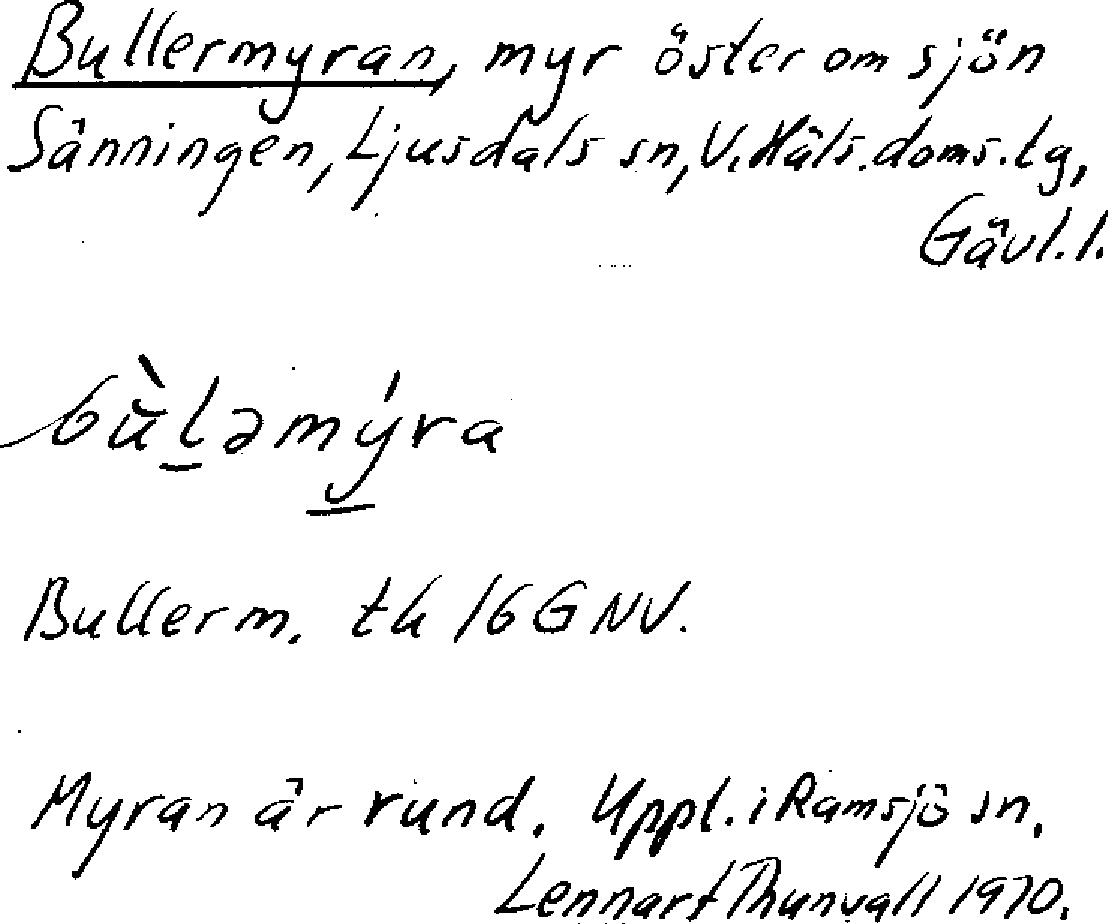 Bullermyran, myr öster om sjön
Sänningen, Ljusdals sn, V. Häls. doms. tg,
Gävl. l.
bùl̠əmý̠ra
Bullerm. tk 16 G NV.
Myran är rund. Uppl. i Ramsjö sn.
Lennart Thunvall 1970.